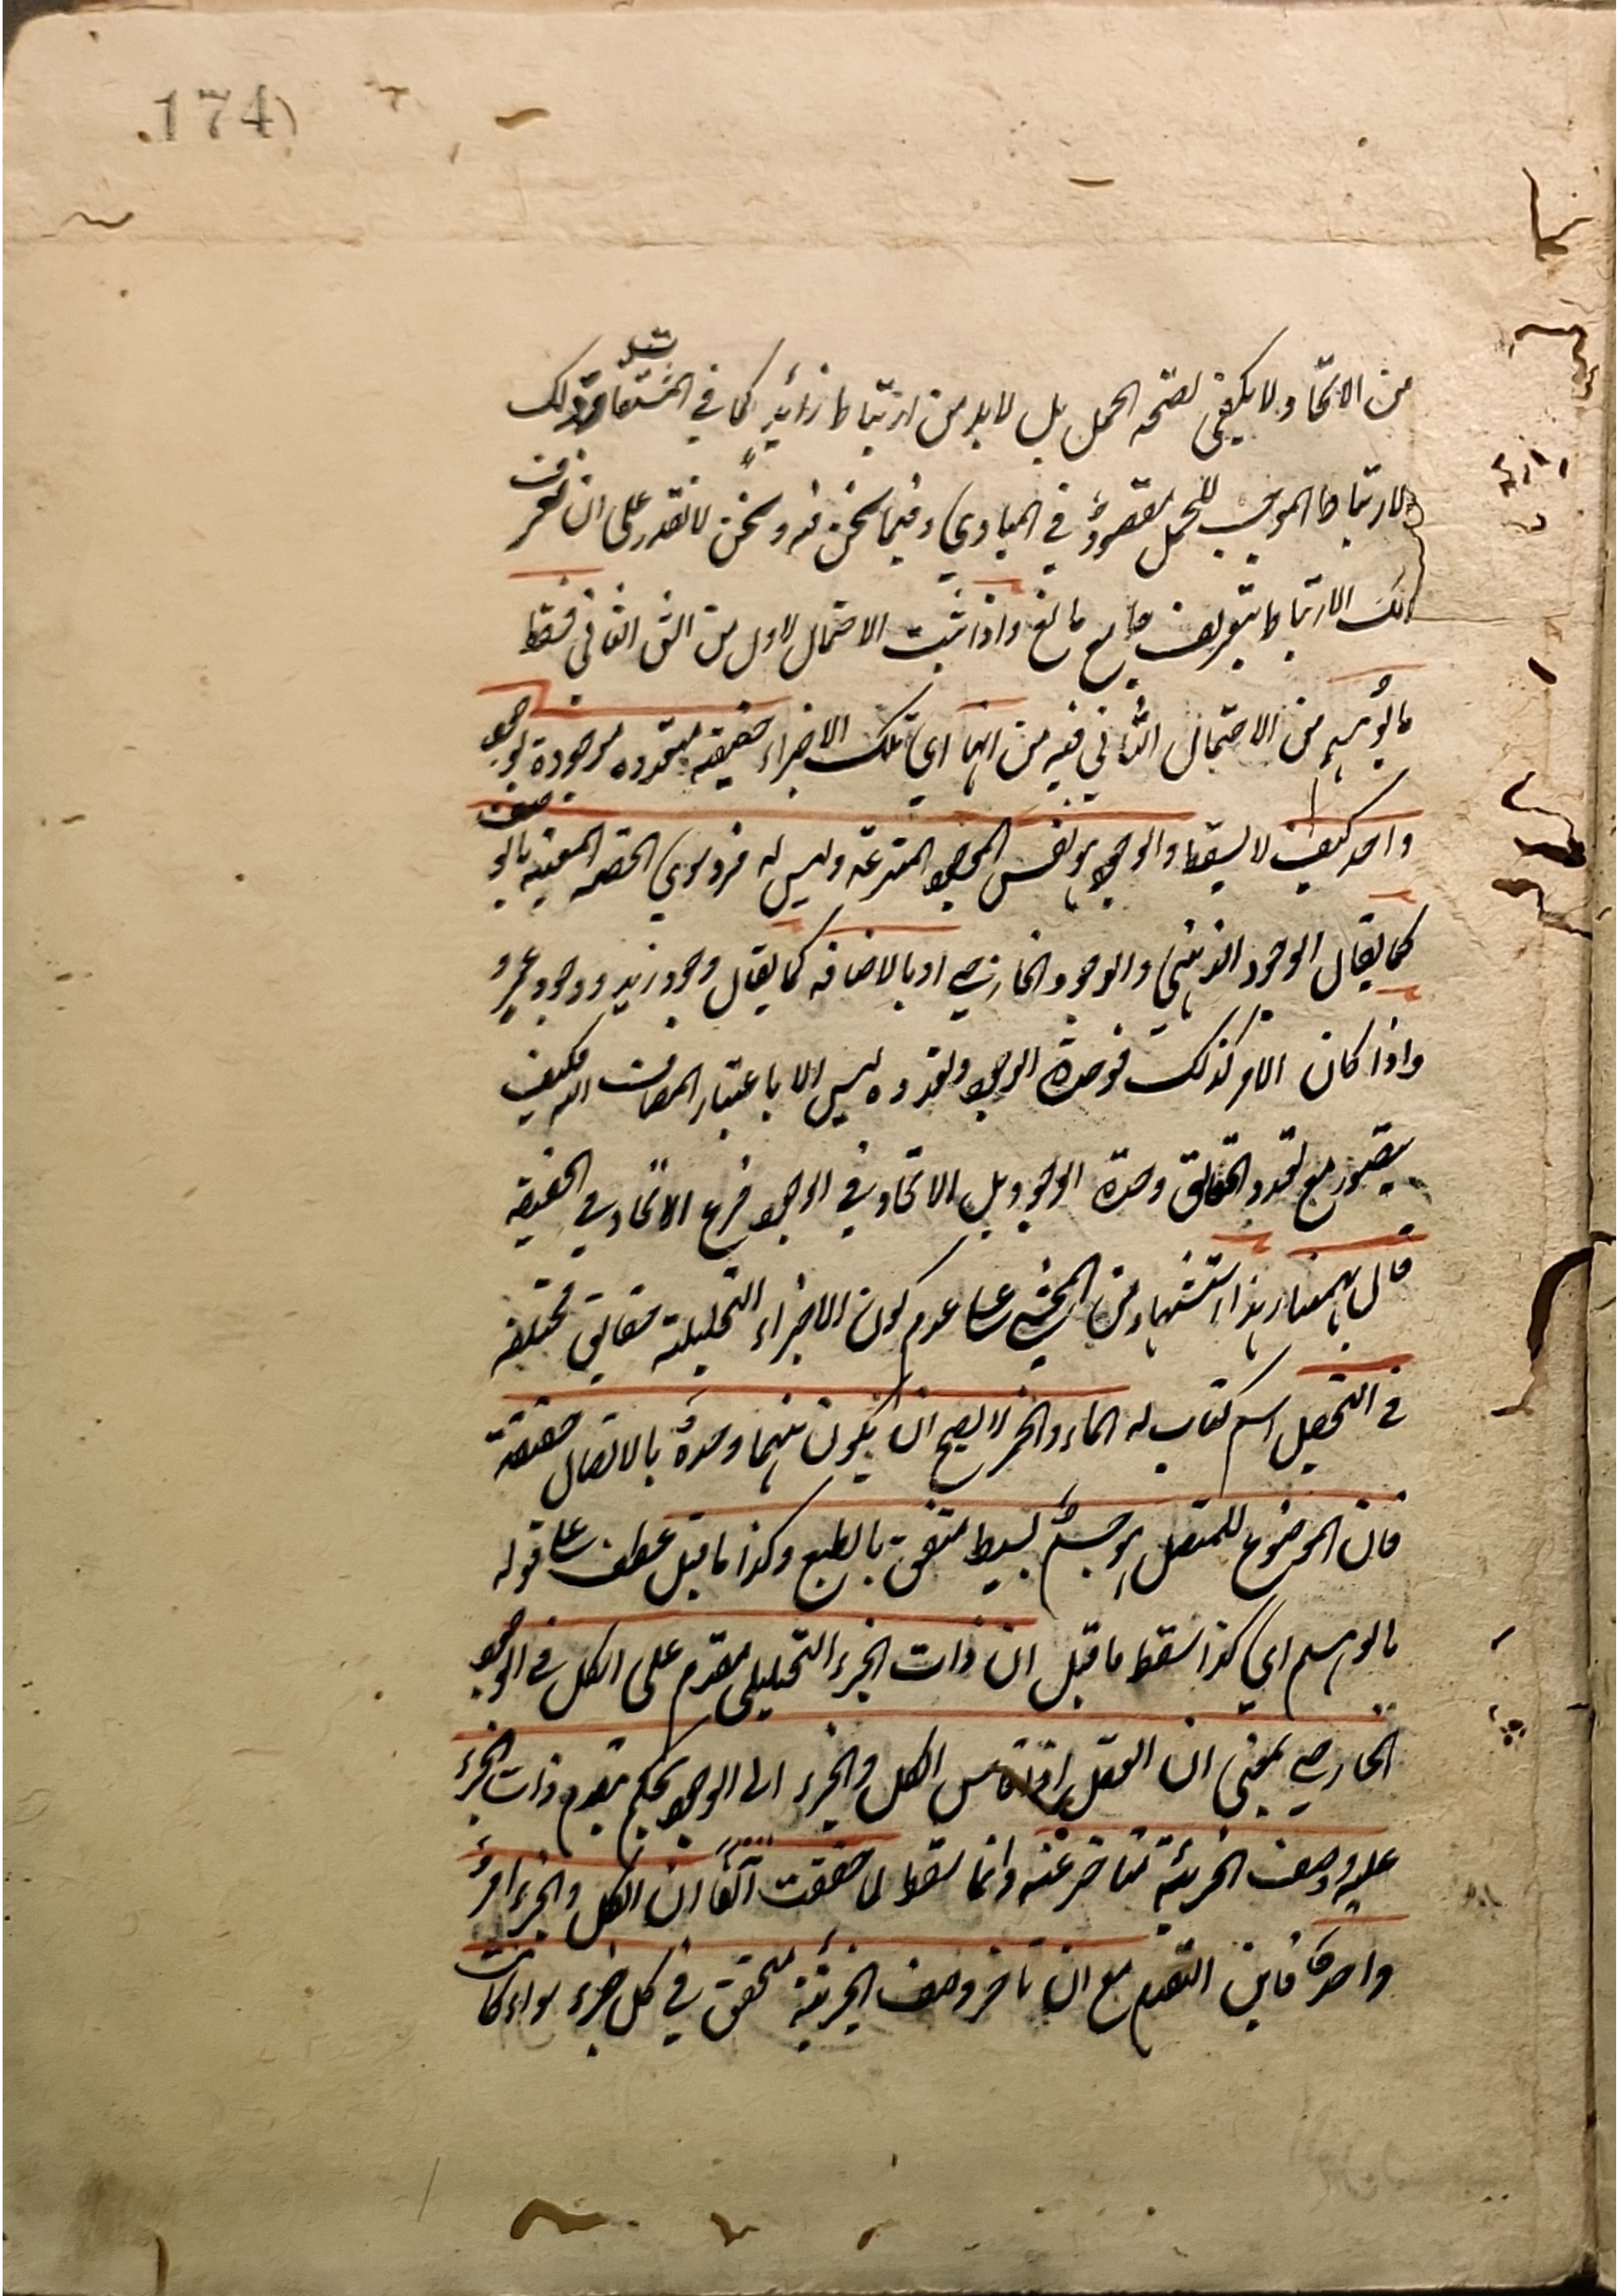 174
من الاتحاد ولا يكفى لصحة الحمل بل لابد من ارتباط زائد كما في المشتقات مثلا وذلك
الارتباط الموجب للحمل مفقود في المبادي وفيما نحن فيه ونحن لا نقدر على ان نعرف
ذلك الارتباط بتعريف جامع مانع واذا ثبت الاحتمال الاول من الشق الثاني فسقط
ما توهم من الاحتمال الثاني فيه من انها اي تلك الاجزاء حقيقة متعددة موجودة بوجود
واحد كيف لا يسقط والوجود هو نفس الموجودية المنتزعة وليس له فرد سوى الحصة المعينة بالوصف
كما يقال الوجود الذهني والوجود الخارجي او بالاضافة كما يقال وجود زيد ووجود عمرو
واذا كان الامر كذلك فوحدة الوجود وتعدده ليس الا باعتبار المضاف اليه فكيف
يتصور مع تعدد الحقائق وحدة الوجود بل الاتحاد في الوجود فرع الاتحاد في الحقيقة
قال بهمنيار هذا استشهاد من المحشي على عدم كون الاجزاء التحليلية حقائق مختلفة
في التحصيل اسم كتاب له الماء والخمر لا يصح ان يكون بينهما وحدة بالاتصال حقيقة
فان الموضوع للمتصل هو جسم بسيط متفق بالطبع وكذا ما قيل عطف على قوله
ما توهم اي كذا سقط ما قيل ان ذات الجزء التحليلي مقدم على الكل في الوجود
الخارجي بمعنى ان العقل اذا قاس الكل والجزء الى الوجود يحكم بتقدم ذات الجزء
عليه ووصف الجزئية متاخر عنه وانما سقط لما حققت آنفا ان الكل والجزء امر
واحد فاين التقدم مع ان تاخر وصف الجزئية متحقق في كل جزء سواء كانت